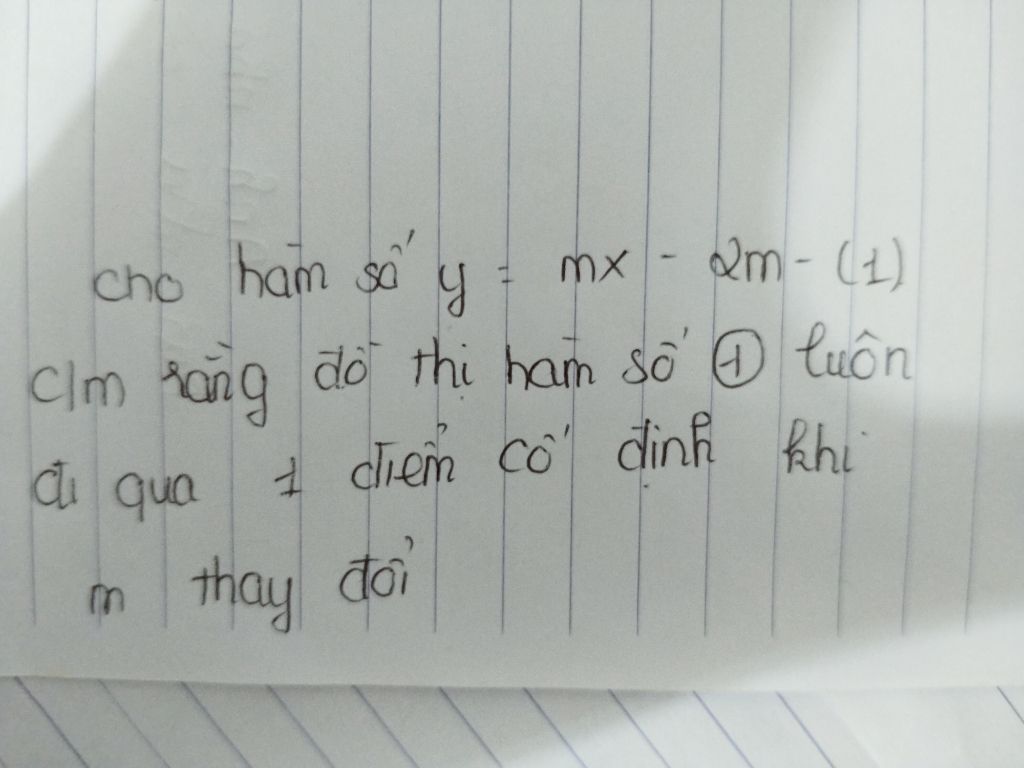 cho hàm số y = mx - 2m - (1)
c/m rằng đồ thị hàm số ① luôn
đi qua 1 điểm cố định khi
m thay đổi